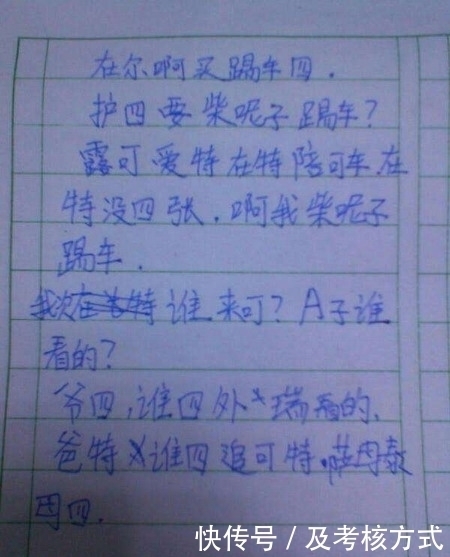 在尔啊买踢车四.
护四要柴呢子踢车?
露可爱特在特陪可车.在
特没四张.啊我柴呢子
踢车.
谁来叮?A子谁
看的?
爷四,谁四外瑞看的.
爸特谁四追可特.萨因泰
因四.
快传号/及考核方式